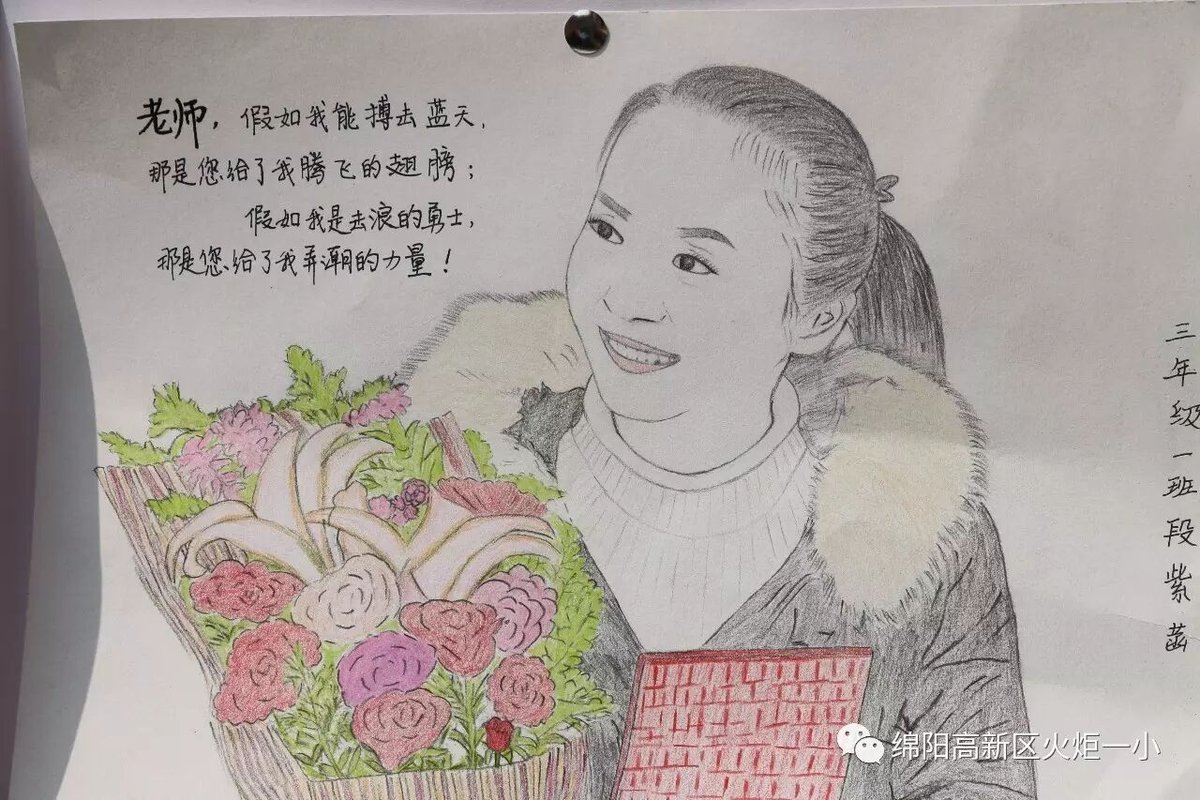 老师，假如我能搏击蓝天，
那是您给了我腾飞的翅膀；
假如我是击浪的勇士，
那是您给了我弄潮的力量！
三年级一班段紫菡
绵阳高新区火炬一小